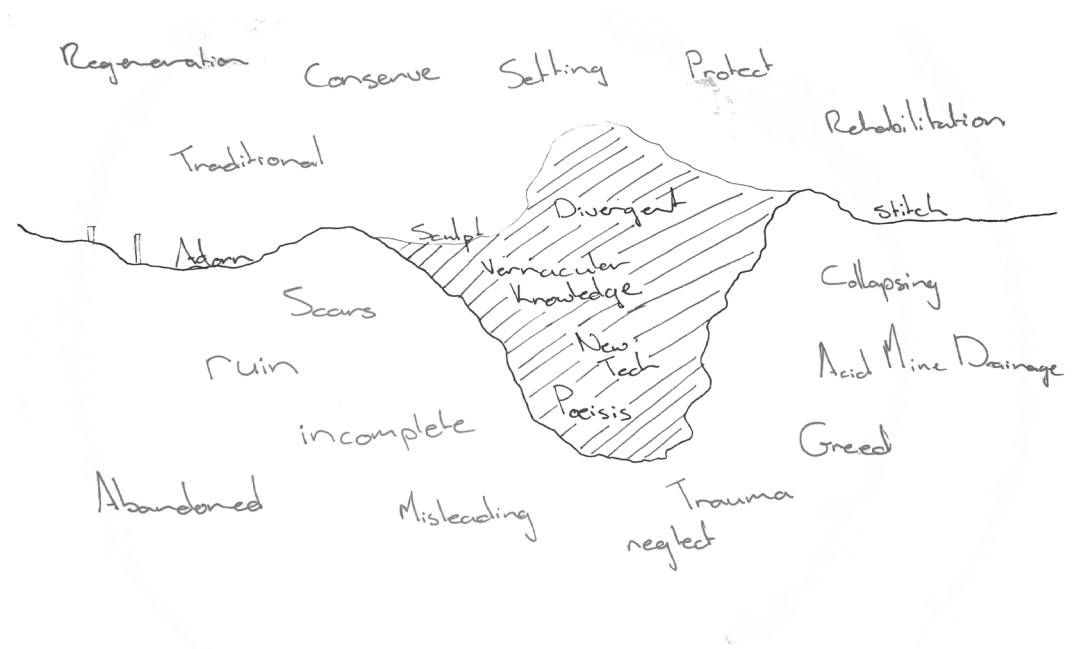 Regeneration
Conserve
Setting
Protect
Rehabilitation
Traditional
Divergent
Stitch
Sculpt
Adorn
Vernacular
Knowledge
Collapsing
Scars
New
Tech
Acid Mine Drainage
ruin
Poeisis
incomplete
Greed
Abandoned
Misleading
Trauma
neglect